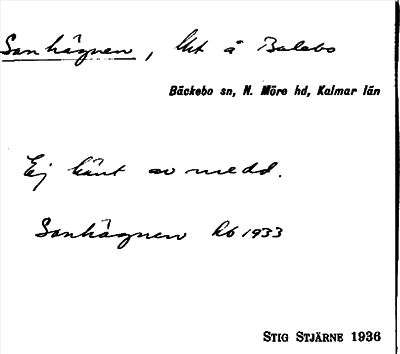 Sonhägnen, Utt å Balebo
Bäckebo sn, N. Möre hd, Kalmar län
Ej känt av medd.
Sonhägnen Rb 1933
STIG STJÄRNE 1936